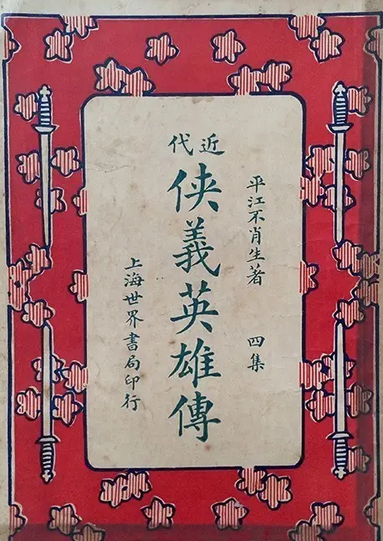 平江不肖生著 四集
近代
俠義英雄傳
上海世界書局印行